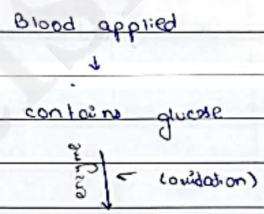 Blood applied
↓
contains glucose
(oxidation)